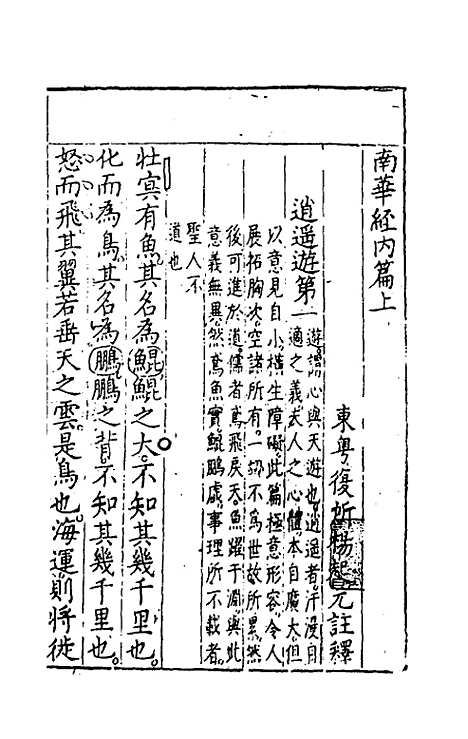 南華經內篇上
東粤復所楊起元註釋
逍遥遊第一
遊謂心與天遊也逍遥者汗漫自
適之義夫人之心體本自廣大但
以意見自小橫生障礙此篇極意形容令人
展拓胸次空諸所有一切不為世故所累然
後可進於道儒者鳶飛戾天魚躍于淵與此
意義無異然鳶魚實鯤鵬虛事理所不載者
聖人不
道也
北㝠有魚其名為鯤鯤之大不知其幾千里也
化而為鳥其名為鵬鵬之背不知其幾千里也
怒而飛其翼若垂天之雲是鳥也海運則將徙